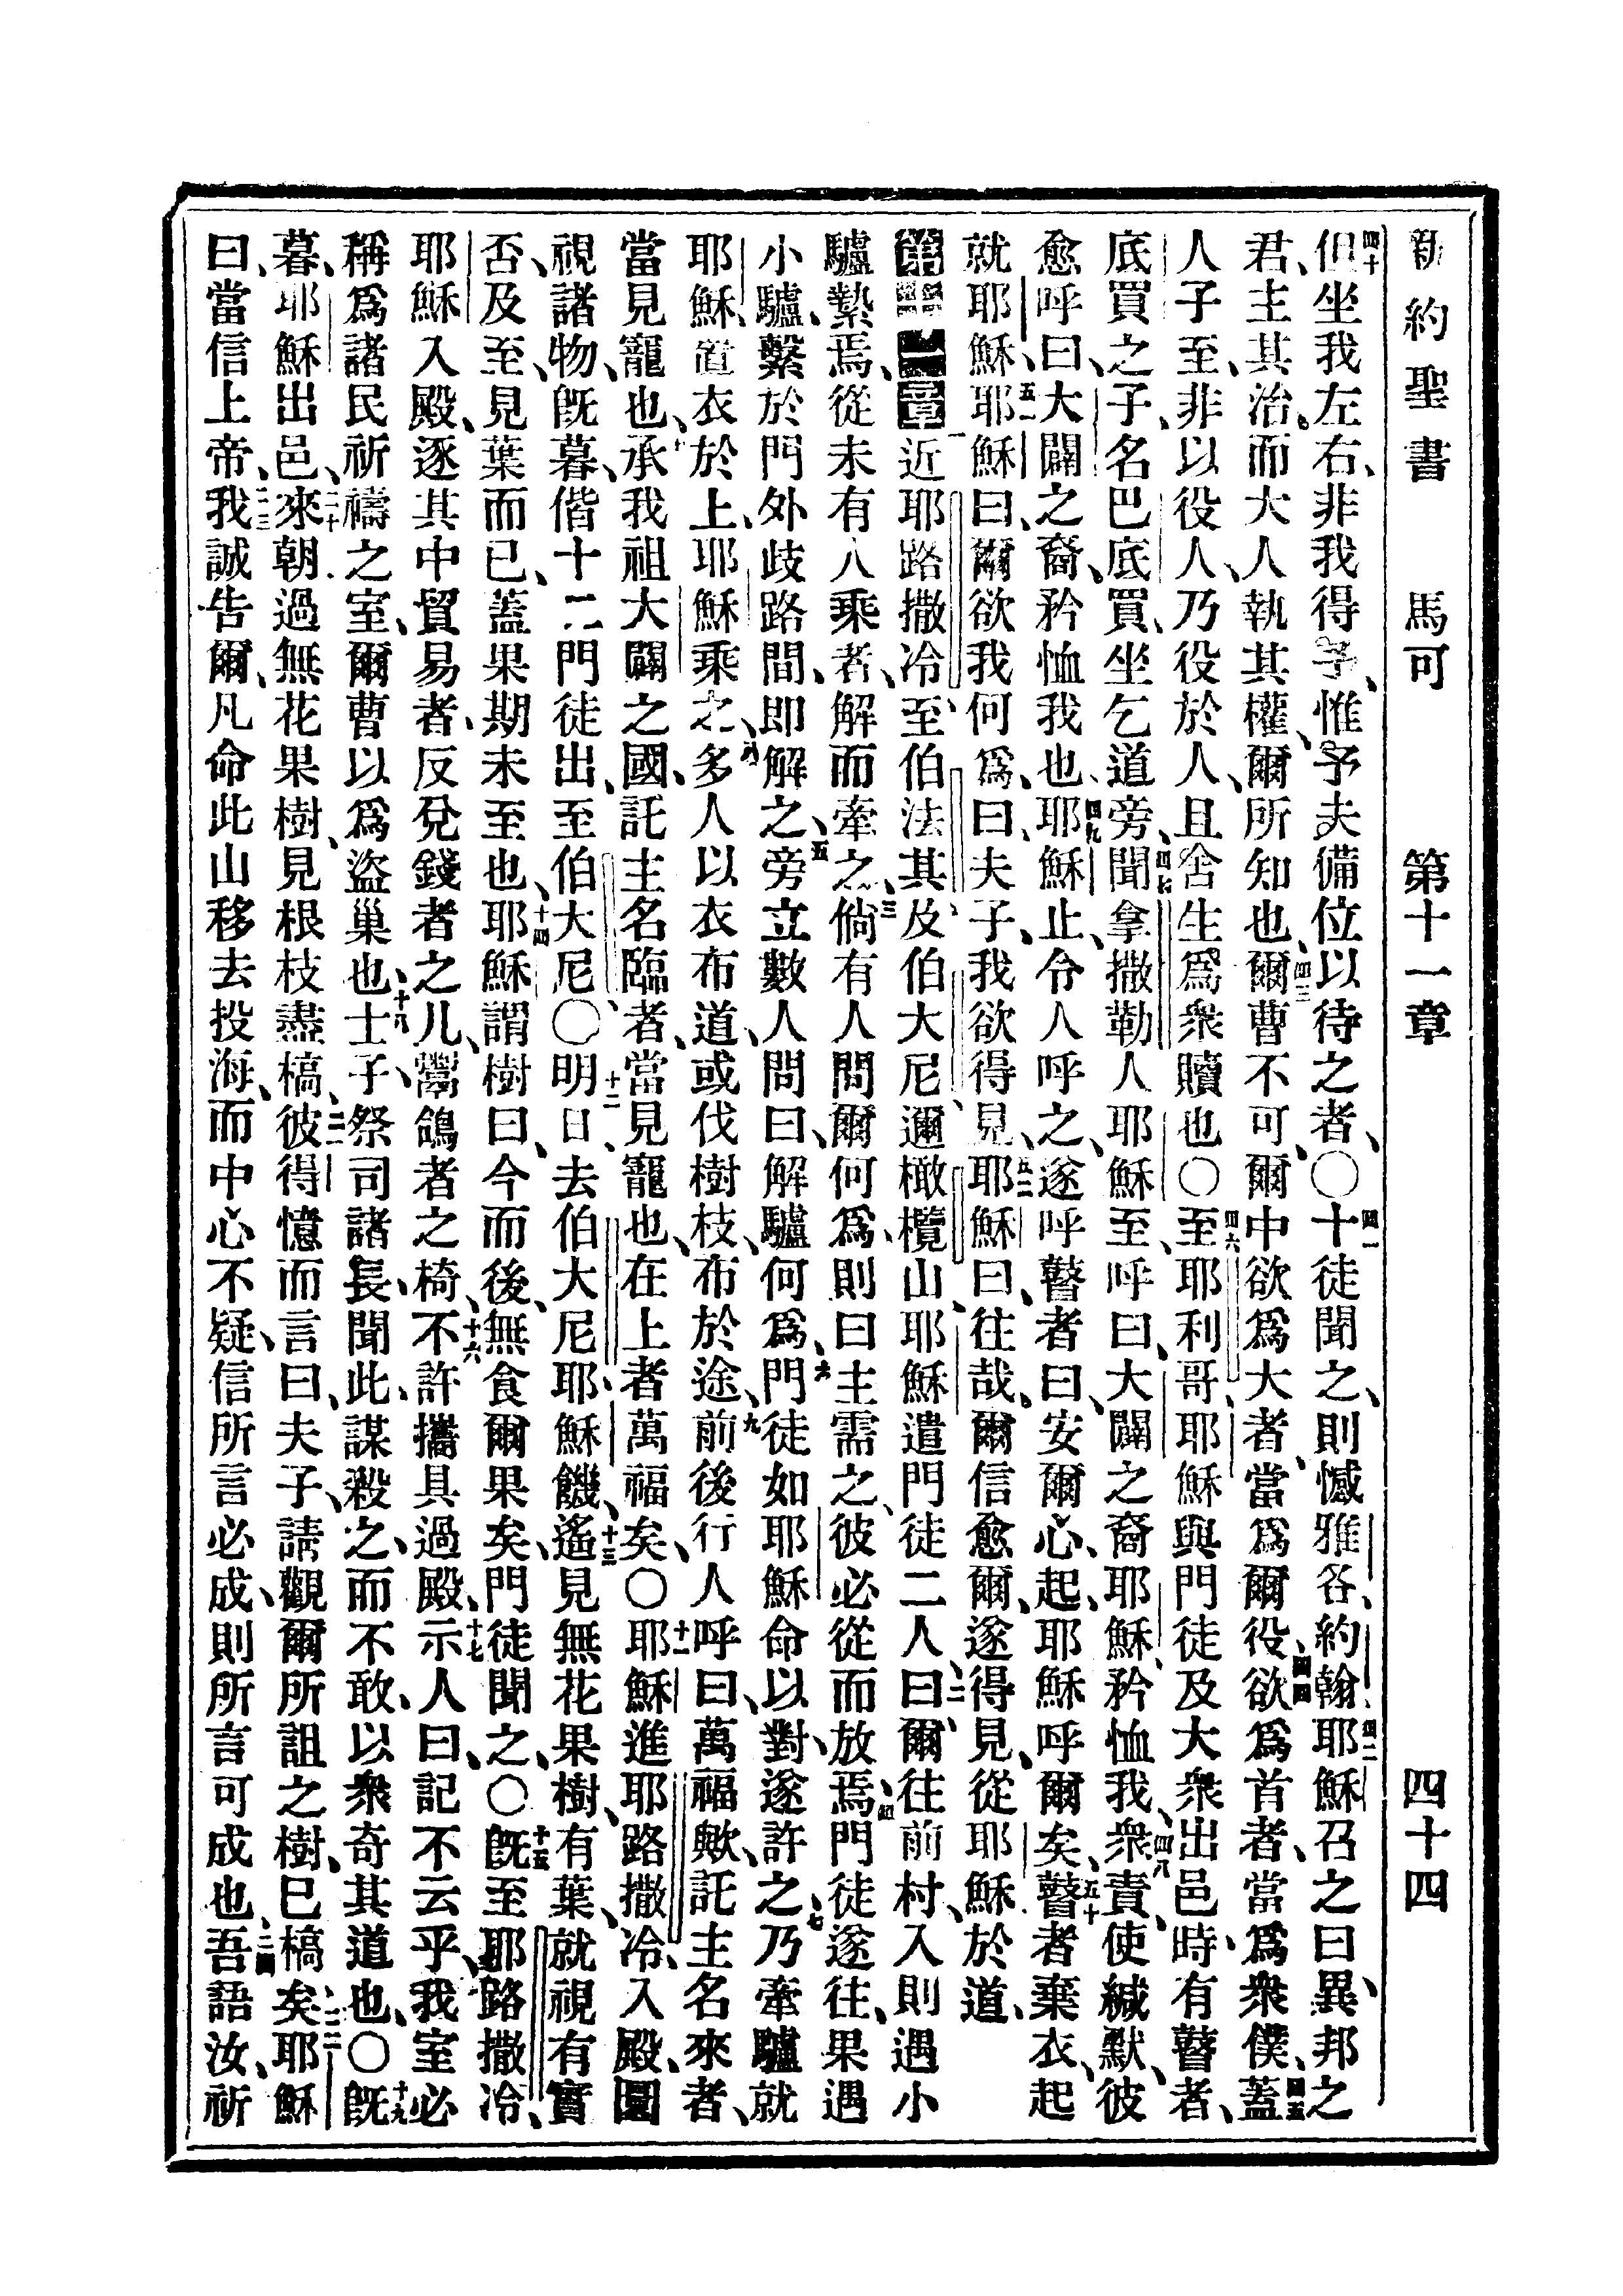 新約聖書 馬可 第十一章 四十四
四十但坐我左右、非我得予、惟予夫備位以待之者、〇四一十徒聞之、則憾雅各、約翰、四二耶穌召之曰、異邦之
君、主其治、而大人執其權、爾所知也、四三爾曹不可、爾中欲爲大者、當爲爾役、四四欲爲首者、當爲衆僕、四五蓋
人子至、非以役人、乃役於人、且舍生爲衆贖也〇四六至耶利哥、耶穌與門徒及大衆出邑時、有瞽者、
底買之子、名巴底買、坐乞道旁、四七聞拿撒勒人耶穌至、呼曰、大闢之裔耶穌、矜恤我、四八衆責使緘默、彼
愈呼曰、大闢之裔、矜恤我也、四九耶穌止、令人呼之、遂呼瞽者曰、安爾心、起、耶穌呼爾矣、五十瞽者棄衣、起
就耶穌、五一耶穌曰、爾欲我何爲、曰、夫子、我欲得見、五二耶穌曰、往哉、爾信愈爾、遂得見、從耶穌於道、
第十一章一近耶路撒冷、至伯法其、及伯大尼、邇橄欖山、耶穌遣門徒二人曰、二爾往前村、入則遇小
驢縶焉、從未有人乘者、解而牽之、三倘有人問爾何爲、則曰主需之、彼必從而放焉、四門徒遂往、果遇
小驢、繫於門外歧路間、即解之、五旁立數人問曰、解驢何爲、六門徒如耶穌命以對、遂許之、七乃牽驢就
耶穌、置衣於上、耶穌乘之、八多人以衣布道、或伐樹枝、布於途、九前後行人呼曰、萬福歟、託主名來者、
當見寵也、十承我祖大闢之國、託主名臨者、當見寵也、在上者萬福矣、〇十一耶穌進耶路撒冷、入殿、圜
視諸物、旣暮、偕十二門徒出、至伯大尼〇、十二明日、去伯大尼、耶穌饑、十三遙見無花果樹、有葉、就視有實
否、及至、見葉而已、蓋果期未至也、十四耶穌謂樹曰、今而後、無食爾果矣、門徒聞之、〇十五旣至耶路撒冷、
耶穌入殿、逐其中貿易者、反兌錢者之几、鬻鴿者之椅、十六不許攜具過殿、十七示人曰、記不云乎、我室必
稱爲諸民祈禱之室、爾曹以爲盜巢也、十八士子、祭司諸長、聞此、謀殺之、而不敢、以衆奇其道也、〇十九旣
暮、耶穌出邑、二十來朝過無花果樹、見根枝盡槁、二一彼得憶而言曰、夫子、請觀爾所詛之樹、已槁矣、二二耶穌
曰、當信上帝、二三我誠告爾、凡命此山移去投海、而中心不疑、信所言必成、則所言可成也、二四吾語汝、祈